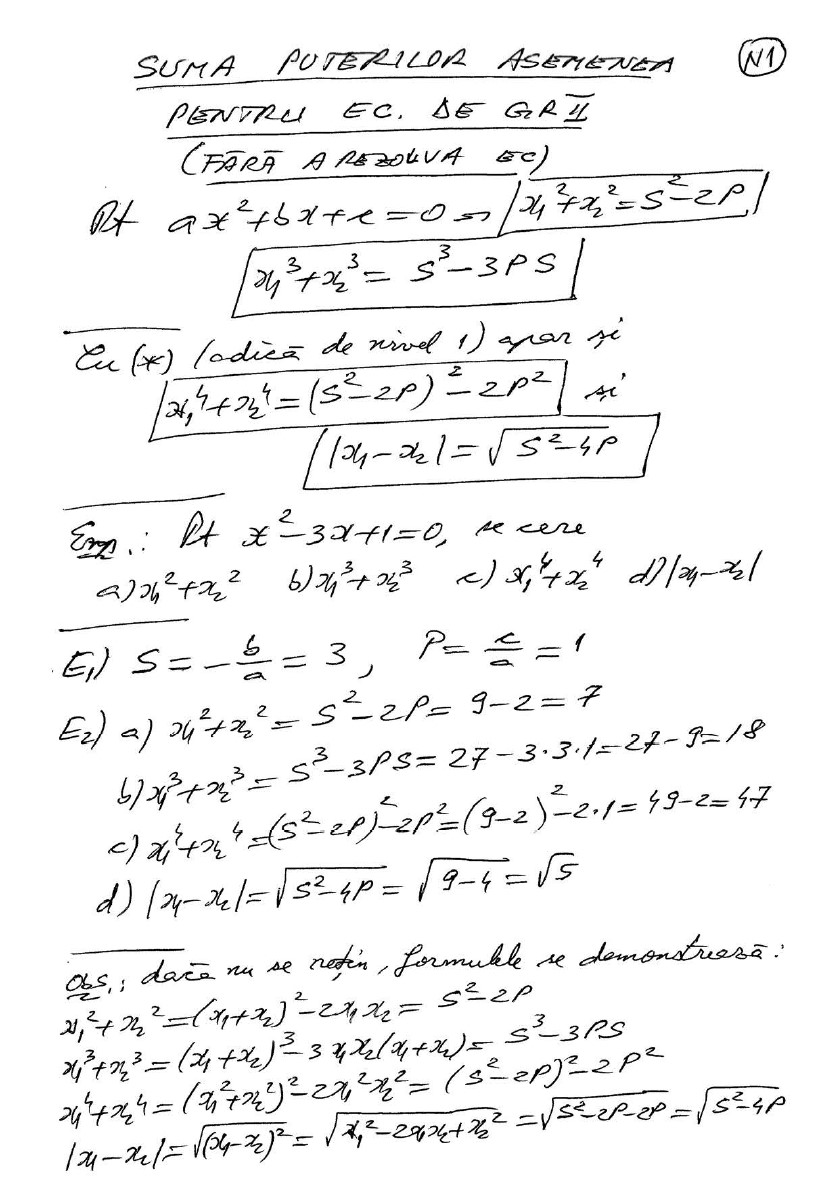 SUMA PUTERILOR ASEMENEA N1
PENTRU EC. DE GR II
(FĂRĂ A REZOLVA EC)
Pt ax²+bx+c=0 ⇒ x₁²+x₂²=S²-2P
x₁³+x₂³= S³-3PS
Cu (*) (adică de nivel 1) apar și
x₁⁴+x₂⁴=(S²-2P)²-2P² și
|x₁-x₂|=√(S²-4P)
Exp.: Pt x²-3x+1=0, se cere
a) x₁²+x₂² b) x₁³+x₂³ c) x₁⁴+x₂⁴ d) |x₁-x₂|
E₁) S=-b/a=3, P=c/a=1
E₂) a) x₁²+x₂²=S²-2P=9-2=7
b) x₁³+x₂³=S³-3PS=27-3·3·1=27-9=18
c) x₁⁴+x₂⁴=(S²-2P)²-2P²=(9-2)²-2·1=49-2=47
d) |x₁-x₂|=√(S²-4P)=√(9-4)=√5
Obs.: dacă nu se rețin, formulele se demonstrează:
x₁²+x₂²=(x₁+x₂)²-2x₁x₂=S²-2P
x₁³+x₂³=(x₁+x₂)³-3x₁x₂(x₁+x₂)=S³-3PS
x₁⁴+x₂⁴=(x₁²+x₂²)²-2x₁²x₂²=(S²-2P)²-2P²
|x₁-x₂|=√((x₁-x₂)²)=√(x₁²-2x₁x₂+x₂²)=√(S²-2P-2P)=√(S²-4P)